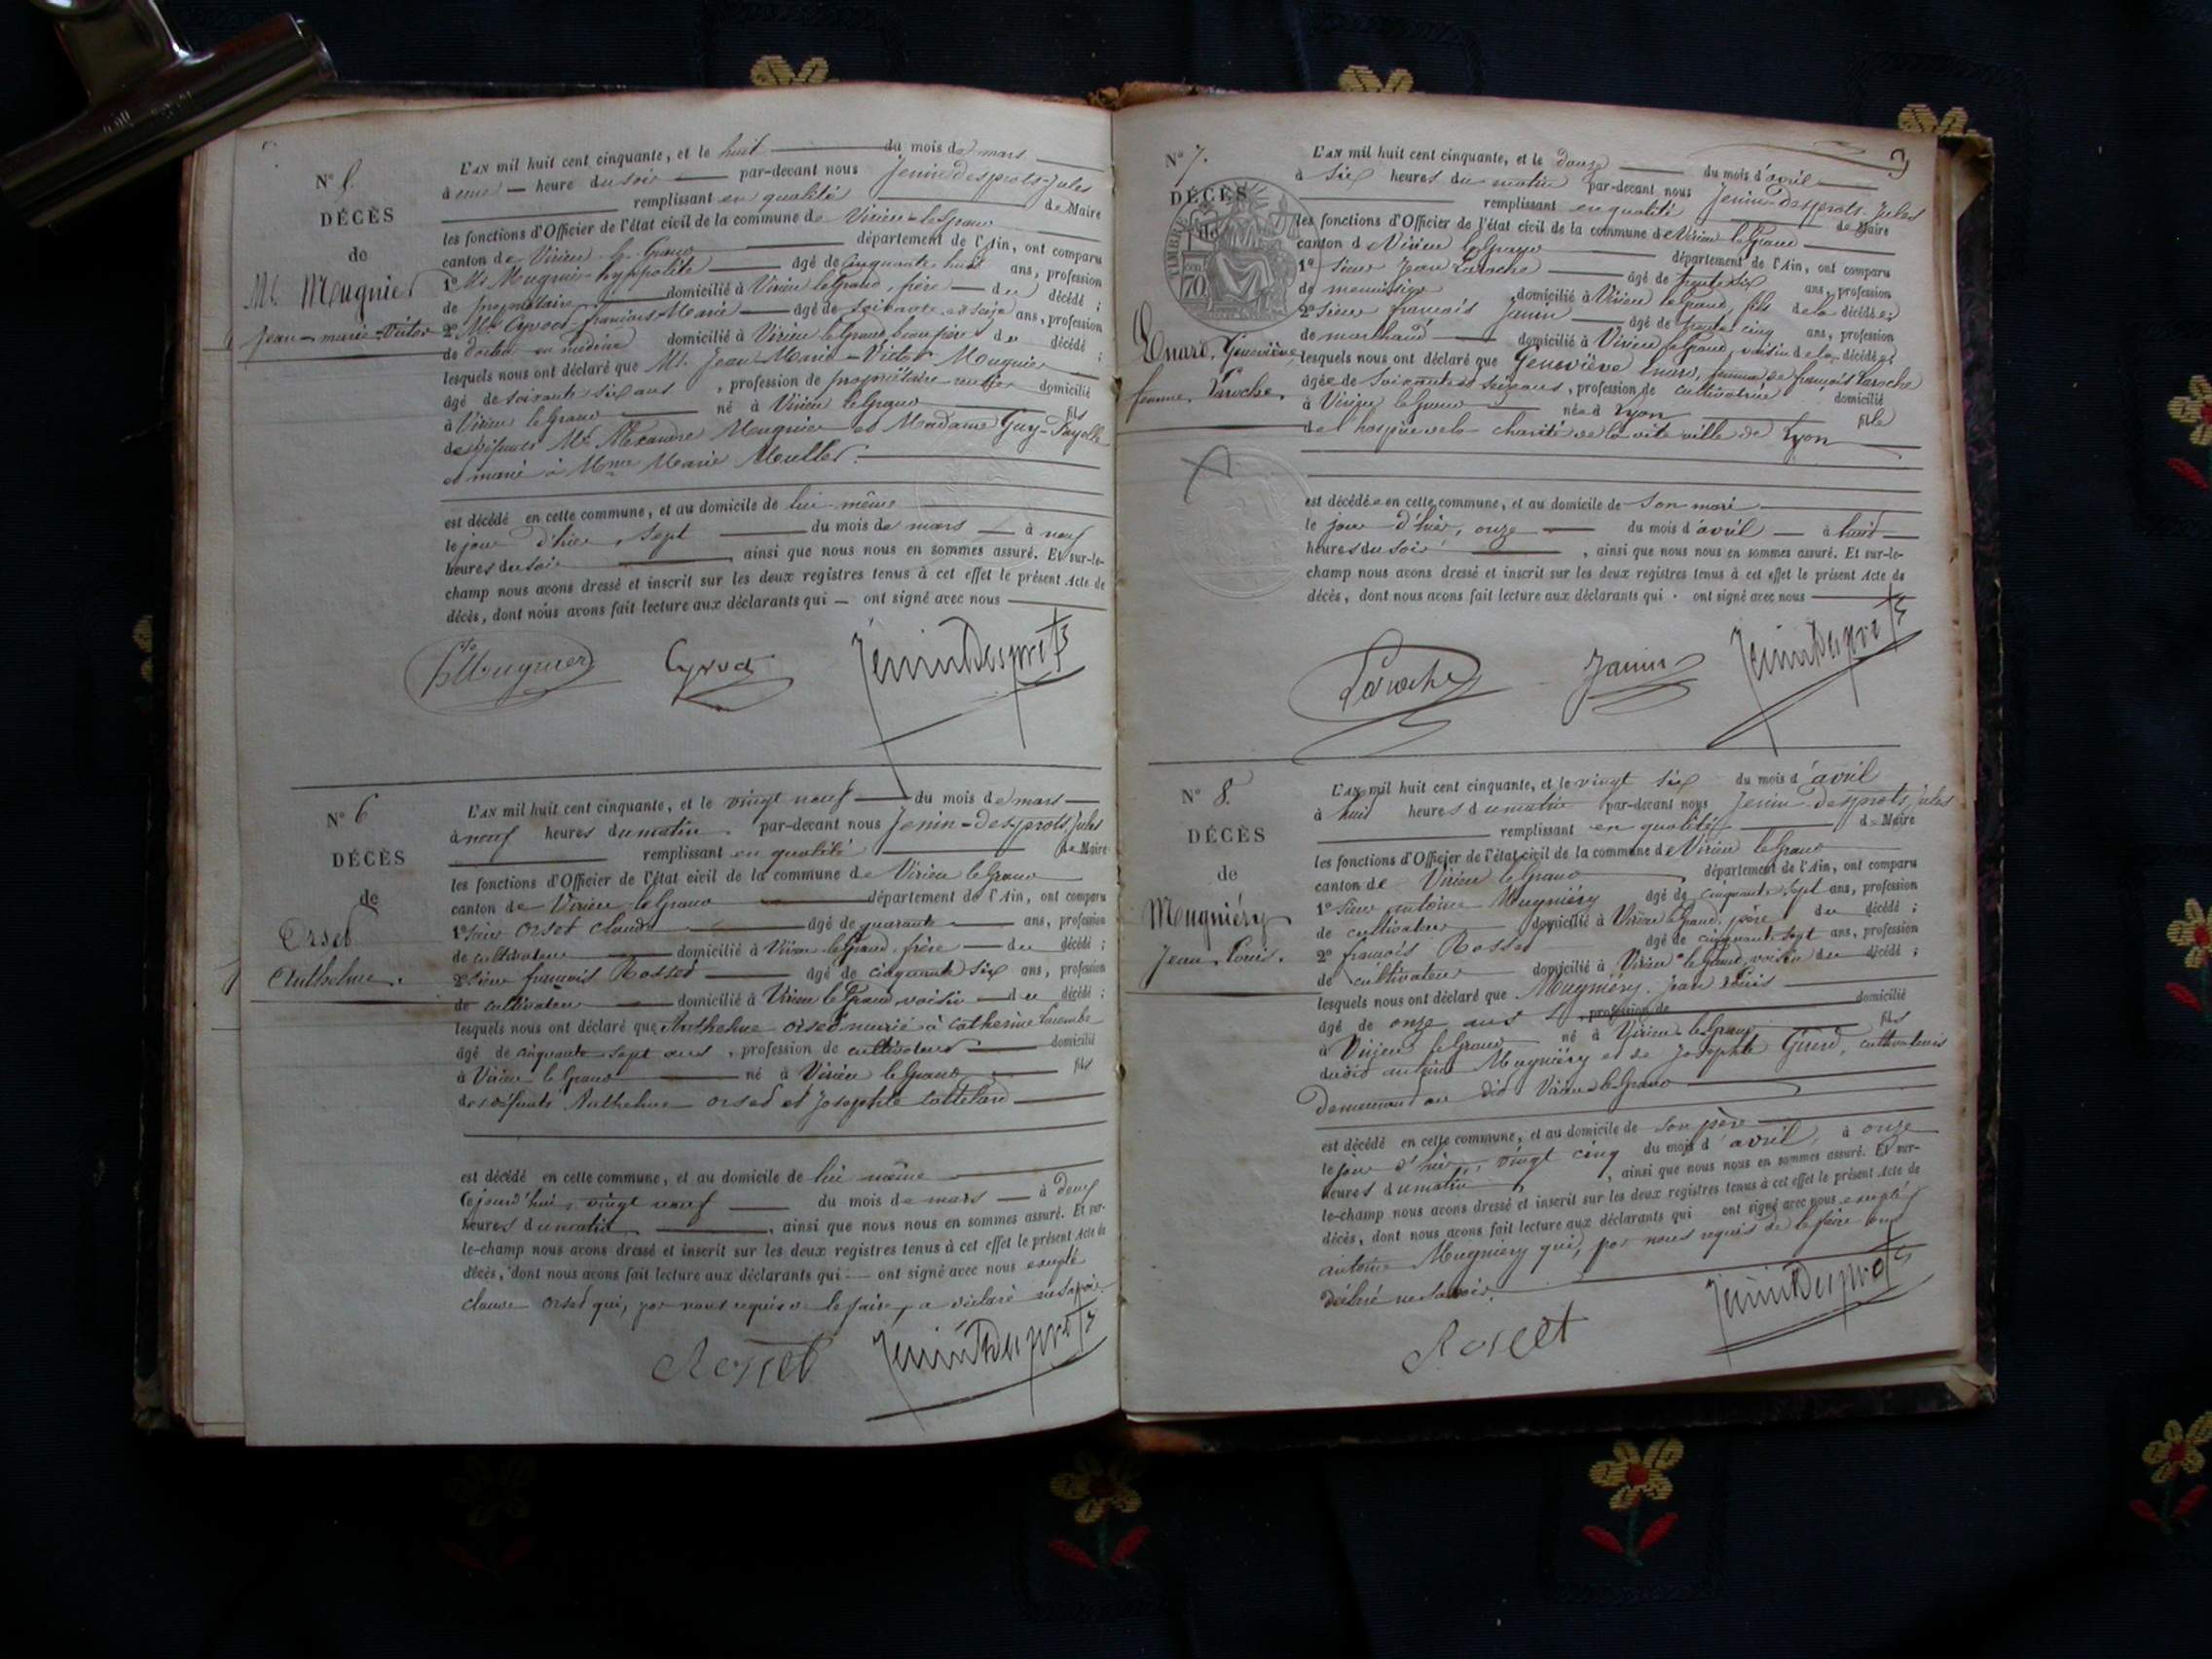 N° 5.
DÉCÈS
de
Mr. Mugnier
Jean-marie-Victor
L'AN mil huit cent cinquante, et le huit du mois de mars
à une heure du soir par-devant nous Jenin desprots-Jules
remplissant en qualité de Maire
les fonctions d'Officier de l'état civil de la commune de Virieu-le-Grand
canton de Virieu-le-Grand département de l'Ain, ont comparu
1° Mr Mugnier hyppolite âgé de cinquante huit ans, profession
de propriétaire domicilié à Virieu le Grand, frère du décédé ;
2° Mr Cyvoct françois-Marie âgé de soixante et seize ans, profession
de docteur en médecine domicilié à Virieu le Grand beau frère du décédé ;
lesquels nous ont déclaré que Mr. Jean-Marie-Victor Mugnier
âgé de soixante six ans , profession de propriétaire rentier domicilié
à Virieu le Grand né à Virieu le Grand fils
des défunts Mr. Alexandre Mugnier et Madame Guy-Payolle
et marié à Mme Marie Muller.
est décédé en cette commune, et au domicile de lui-même
le jour d'hier, sept du mois de mars à neuf
heures du soir , ainsi que nous nous en sommes assuré. Et sur-le-
champ nous avons dressé et inscrit sur les deux registres tenus à cet effet le présent Acte de
décès, dont nous avons fait lecture aux déclarants qui ont signé avec nous
hte Mugnier Cyvoct Jenin Desprots
N° 6
DÉCÈS
de
Orset
Anthelme.
L'AN mil huit cent cinquante, et le vingt neuf du mois de mars
à neuf heures du matin par-devant nous Jenin-desprots Jules
remplissant en qualité de Maire
les fonctions d'Officier de l'état civil de la commune de Virieu le Grand
canton de Virieu le Grand département de l'Ain, ont comparu
1° sieur Orset claude âgé de quarante ans, profession
de cultivateur domicilié à Virieu le Grand, frère du décédé ;
2° sieur françois Rosset âgé de cinquante six ans, profession
de cultivateur domicilié à Virieu le Grand voisin du décédé ;
lesquels nous ont déclaré que Anthelme orset marié à Catherine Lacombe
âgé de cinquante-sept ans , profession de cultivateur domicilié
à Virieu le Grand né à Virieu le Grand fils
des défunts Anthelme orset et Josephte
est décédé en cette commune, et au domicile de lui même
Cejourd'hui, vingt neuf du mois de mars à deux
heures du matin , ainsi que nous nous en sommes assuré. Et sur-
le-champ nous avons dressé et inscrit sur les deux registres tenus à cet effet le présent Acte de
décès, dont nous avons fait lecture aux déclarants qui ont signé avec nous excepté
claude Orset qui, par nous requis de le faire, a déclaré ne savoir.
Rosset Jenin Desprots
3
N° 7.
DÉCÈS
de
TIMBRE
70
Enard, Geneviève,
femme Laroche.
L'AN mil huit cent cinquante, et le douze du mois d'avril
à six heures du matin par-devant nous Jenin-desprots-Jules
remplissant en qualité de Maire
les fonctions d'Officier de l'état civil de la commune de Virieu le Grand
canton d Virieu le Grand département de l'Ain, ont comparu
1° sieur Jean Laroche âgé de trente six ans, profession
de menuisier domicilié à Virieu le Grand, fils de la décédée ;
2° sieur françois Janin âgé de trente cinq ans, profession
de marchand domicilié à Virieu le Grand, voisin de la décédée ;
lesquels nous ont déclaré que Geneviève Enard, femme de françois Laroche
âgée de soixante et seize ans, profession de cultivatrice domicilié
à Virieu le Grand née à Lyon fille
de l'hospice de la charité de la dite ville de Lyon
est décédée en cette commune, et au domicile de son mari
le jour d'hier, onze du mois d'avril à huit
heures du soir , ainsi que nous nous en sommes assuré. Et sur-le-
champ nous avons dressé et inscrit sur les deux registres tenus à cet effet le présent Acte de
décès, dont nous avons fait lecture aux déclarants qui ont signé avec nous
Laroche Janin Jenin Desprots
N° 8.
DÉCÈS
de
Mugniéry
Jean-Louis.
L'AN mil huit cent cinquante, et le vingt six du mois d'avril
à huit heures du matin par-devant nous Jenin-desprots Jules
remplissant en qualité de Maire
les fonctions d'Officier de l'état civil de la commune de Virieu le Grand
canton de Virieu le Grand département de l'Ain, ont comparu
1° sieur antoine Mugniéry âgé de cinquante sept ans, profession
de cultivateur domicilié à Virieu le Grand, père du décédé ;
2° françois Rosset âgé de cinquante sept ans, profession
de cultivateur domicilié à Virieu le Grand, voisin du décédé ;
lesquels nous ont déclaré que Mugniéry jean Louis
âgé de onze ans , profession de domicilié
à Virieu le Grand né à Virieu-le-Grand fils
dudit antoine Mugniéry et de Josephte cultivateurs
demeurant au dit Virieu-le-Grand
est décédé en cette commune, et au domicile de son père
le jour d'hier, vingt cinq du mois d'avril, à onze
heures du matin , ainsi que nous nous en sommes assuré. Et sur-
le-champ nous avons dressé et inscrit sur les deux registres tenus à cet effet le présent Acte de
décès, dont nous avons fait lecture aux déclarants qui ont signé avec nous excepté
antoine Mugniery qui, par nous requis de le faire a
déclaré ne savoir.
Rosset Jenin Desprots